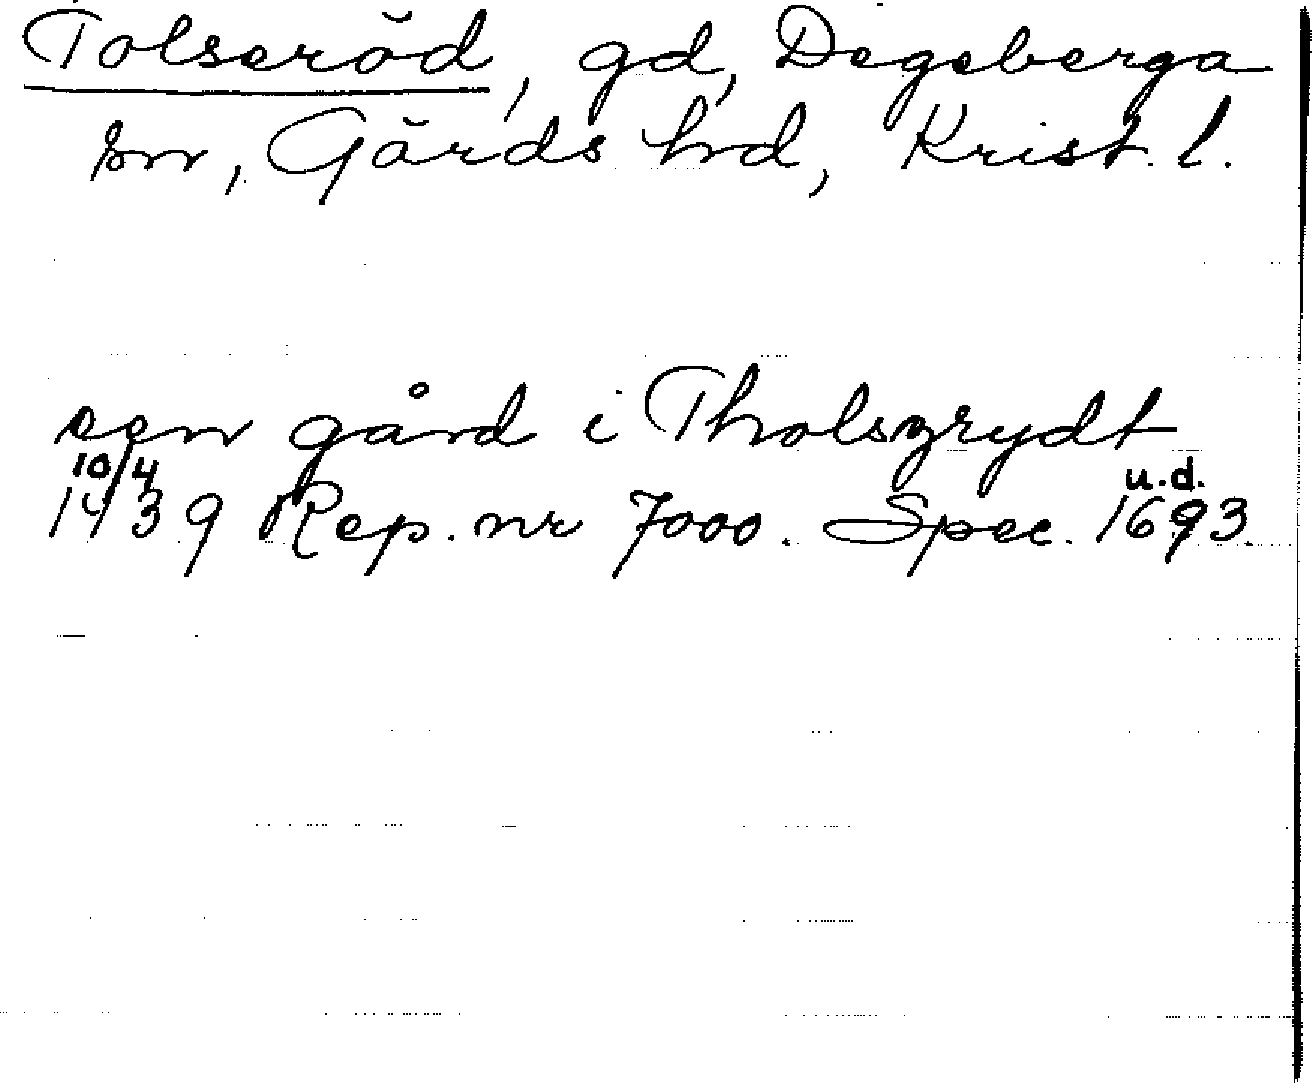 Tolseröd, gd, Degeberga
sn, Gärds hrd, Krist. l.
een gård i Tholszrydt
10/4 u.d.
1439 Rep. nr 7000. Spec. 1693.